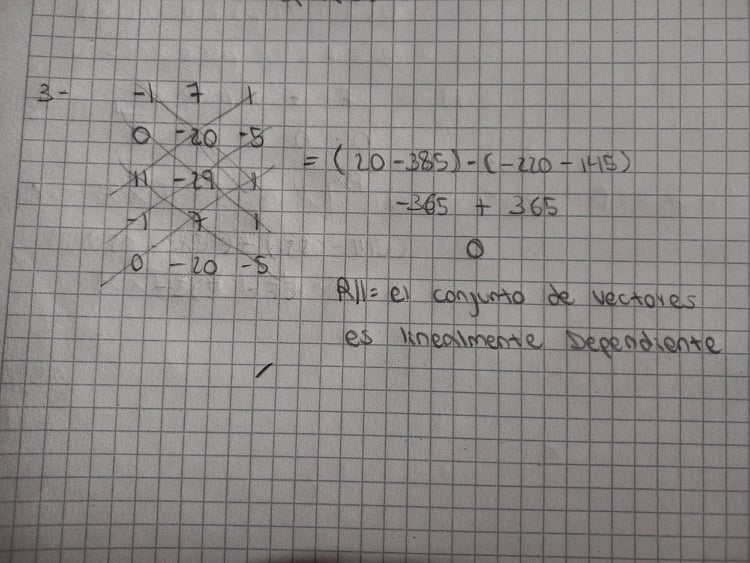 3- -1 7 1
0 -20 -5
11 -29 1
-1 7 1
0 -20 -5
= (20 - 385) - (-220 - 145)
-365 + 365
0
R//= el conjunto de vectores
es linealmente Dependiente